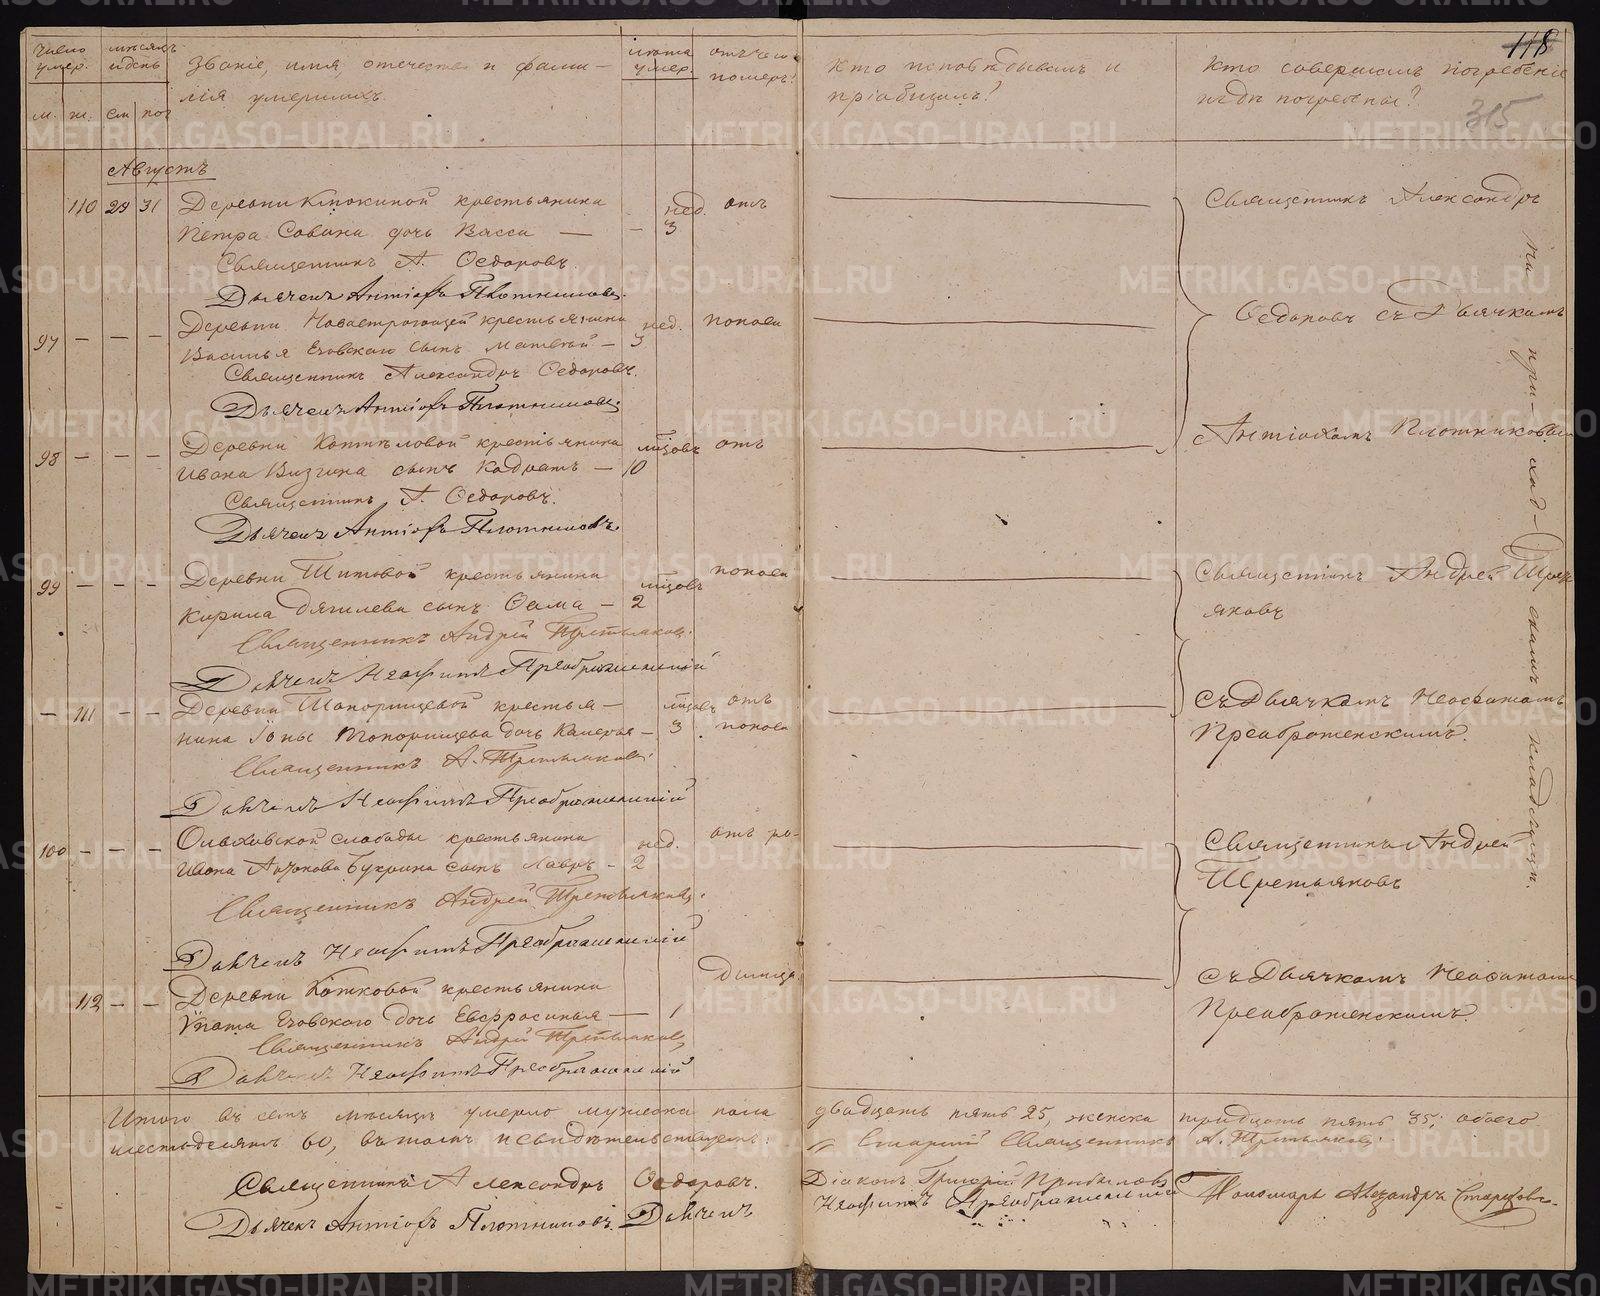 число умер.
мѣсяцъ и день
Званіе, имя, отечество и фами-
лія умершихъ.
лѣта умер.
отъ чего померъ?
Кто исповѣдывалъ и
пріобщалъ?
Кто совершалъ погребеніе
и гдѣ погребены?
118
315
м. ж. см. пог
Августъ
110 29 31 Деревни Кмокиной крестьянина нед. отъ
Петра Савина дочь Васса — — 3
Священникъ А. Ѳедоровъ.
Дьячекъ Антіохъ Плотниковъ.
Деревни крестьянина нед. поноса
97 — — — Василья Еговского сынъ Матвей — 3
Священникъ Александръ Ѳедоровъ.
Дьячекъ Антіохъ Плотниковъ.
Деревни Коптѣловой крестьянина мѣсяцовъ отъ
98 — — — Ивана Визгина сынъ Кодратъ — 10
Священникъ А. Ѳедоровъ.
Дьячекъ Антіохъ Плотниковъ
Деревни Титовой крестьянина мѣсяцовъ поноса
99 — — — Кирила Дягилева сынъ Ѳома — 2
Священникъ Андрей Третьяковъ.
Дьячекъ Неофитъ Преображенскій
— 111 — — Деревни Топорищевой крестья- мѣсяцовъ отъ
нина Іоны Топорищева дочь — 3 поноса
Священникъ А. Третьяковъ.
Дьячекъ Неофитъ Преображенскій
Ольховской слободы крестьянина нед. отъ ро-
100 — — — Ивана Бухрина сынъ Лавръ — 2
Священникъ Андрей Третьяковъ.
Дьячекъ Неофитъ Преображенскій
димца
112 — — Деревни Котковой крестьянина
Ипата Еговского дочь Евфросинья — 1
Священникъ Андрей Третьяковъ
Дьячекъ Неофитъ Преображенскій
Священникъ Александръ
Ѳедоровъ съ Дьячкомъ
Антіохомъ Плотниковымъ
Священникъ Андрей Треть
яковъ
съ Дьячкомъ Неофитомъ
Преображенскимъ.
Священникъ Андрей
Третьяковъ
съ Дьячкомъ Неофитомъ
Преображенскимъ.
на при-ход-скомъ кладбищѣ.
Итого въ семъ мѣсяцѣ умерло мужеска пола двадцать пять 25, женска тридцать пять 35; обоего
шестьдесятъ 60, въ томъ и свидѣтельствуемъ: Старшій Священникъ А. Третьяковъ.
Священникъ Александръ Ѳедоровъ. Діаконъ Григорій Прибыловъ
Дьячекъ Антіохъ Плотниковъ. Дьячекъ Неофитъ Преображенскій Пономарь Александръ Старцовъ.
METRIKI.GASO-URAL.RU